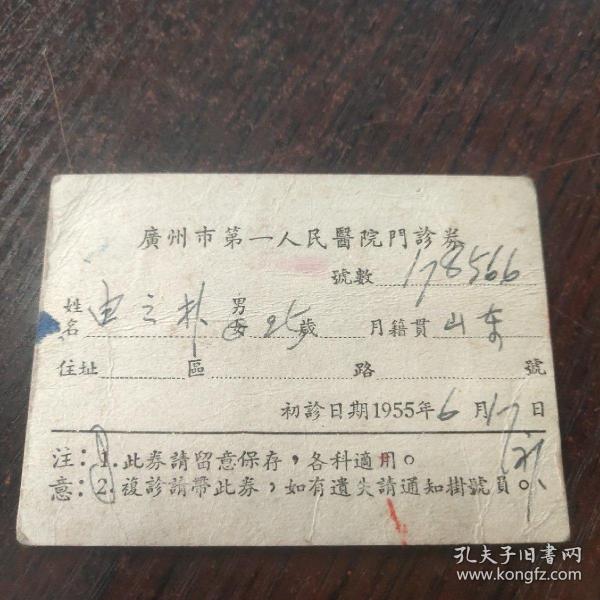 廣州市第一人民醫院門診券
號數 178566
姓名 由之朴 男女 25 歲 月 籍貫 山东
住址 區 路 號
初診日期1955年6月17日
注意：1.此券請留意保存，各科適用。
2.複診請帶此券，如有遺失請通知掛號員。
孔夫子旧书网
www.kongfz.com